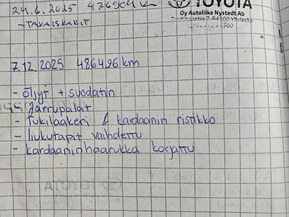 24.6.2025 476904 km
- TAKAISKARIT
TOYOTA
Oy Autoliike Nystedt Ab
7.12.2025 486496 km
- öljyt + suodatin
- jarrupalat
- tukilaakeri & kardaanin ristikko
- liukutapit vaihdettu
- kardaaninhaarukka korjattu